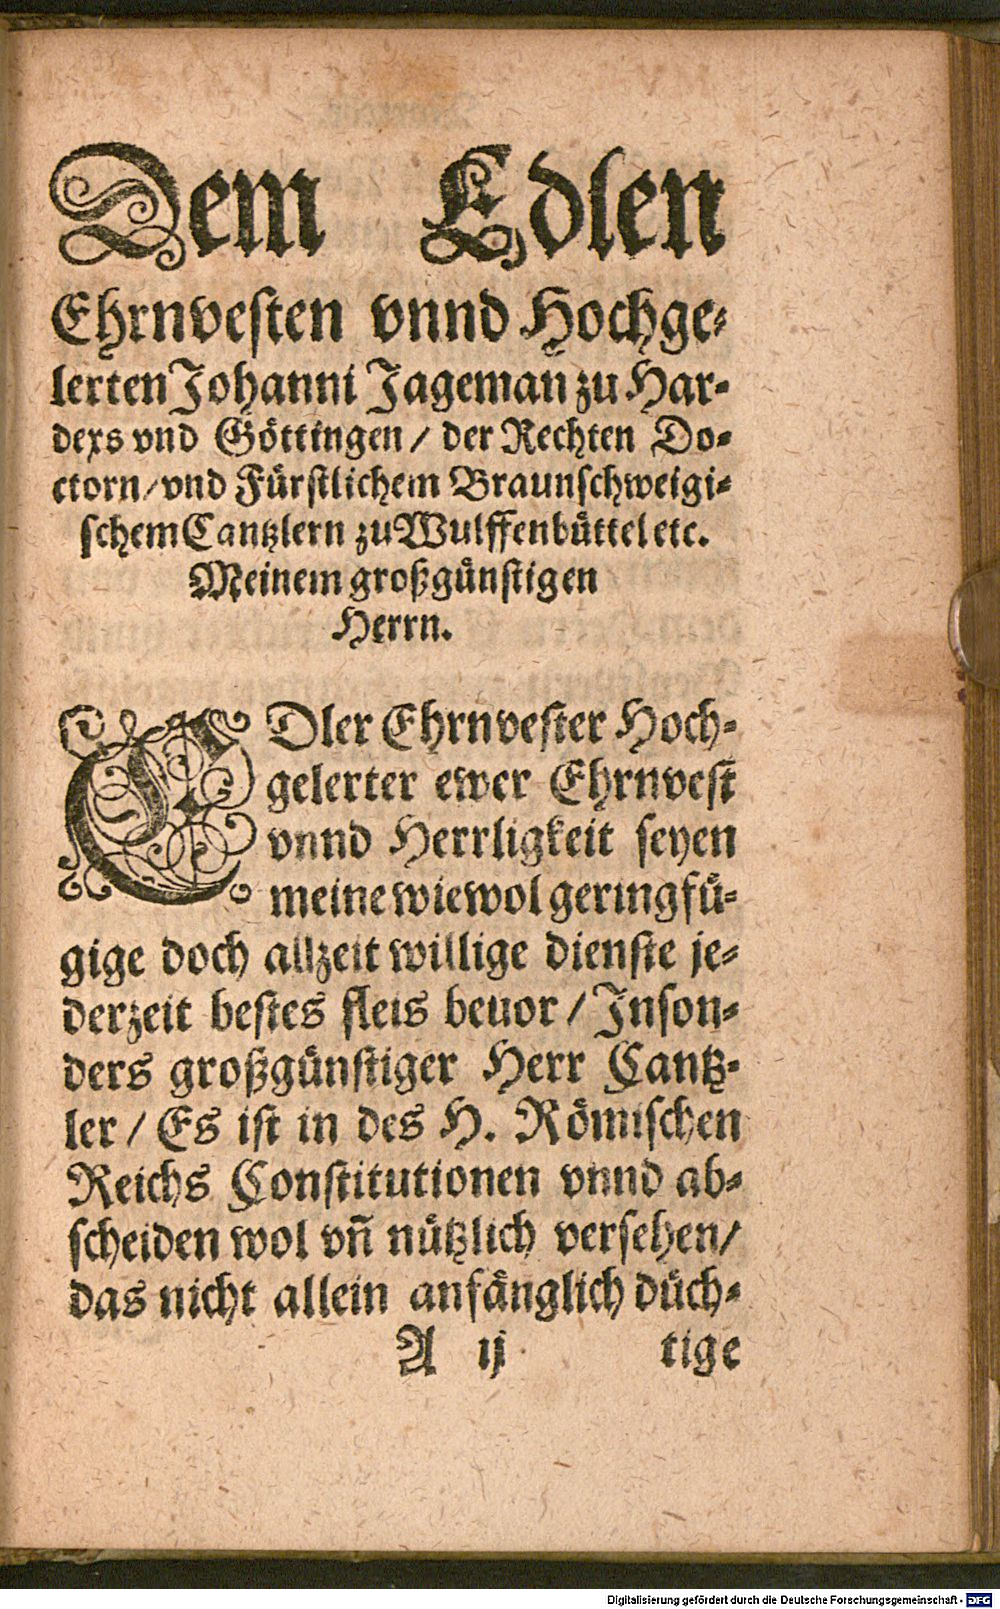 Dem Edlen
Ehrnvesten vnnd Hochge-
lerten Johanni Jageman zu Har-
dexs vnd Göttingen / der Rechten Do-
ctorn / vnd Fürstlichem Braunschweigi-
schem Cantzlern zu Wulffenbüttel etc.
Meinem großgünstigen
Herrn.
EDler Ehrnvester Hoch-
gelerter ewer Ehrnvest
vnnd Herrligkeit seyen
meine wiewol geringfü-
gige doch allzeit willige dienste je-
derzeit bestes fleis beuor / Inson-
ders großgünstiger Herr Cantz-
ler / Es ist in des H. Römischen
Reichs Constitutionen vnnd ab-
scheiden wol vñ nützlich versehen /
das nicht allein anfänglich düch-
A ij tige
Digitalisierung gefördert durch die Deutsche Forschungsgemeinschaft - DFG